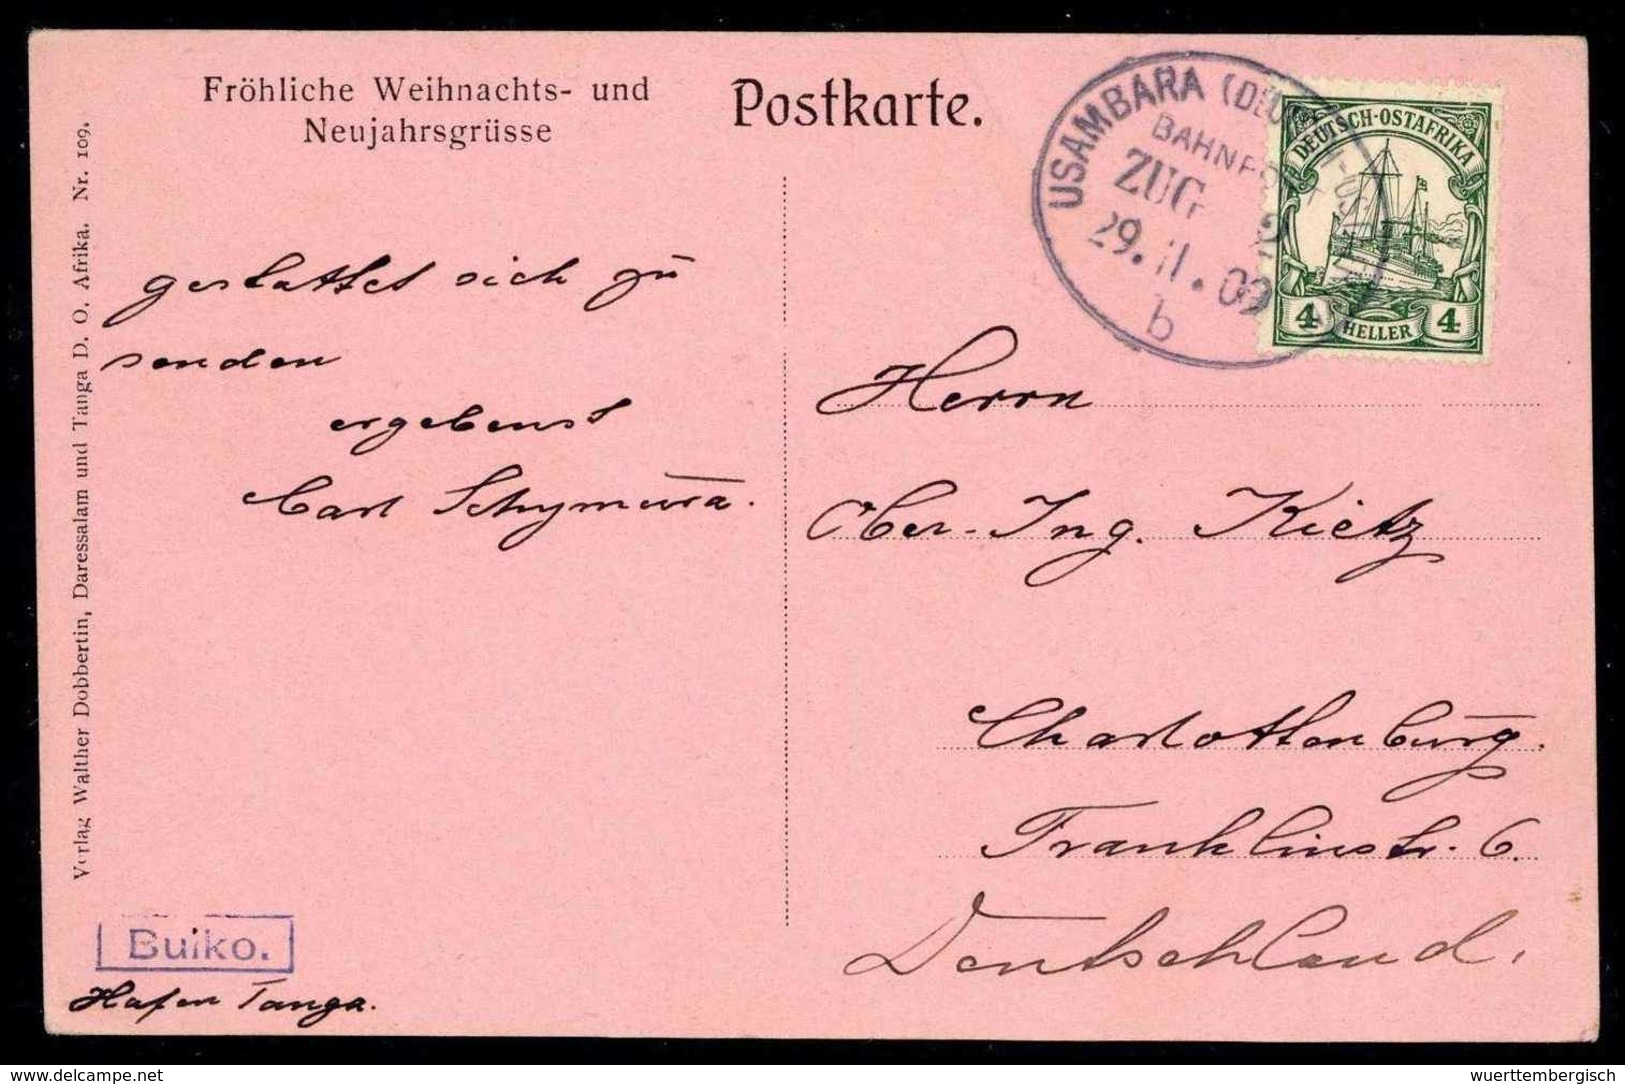 Fröhliche Weihnachts- und
Neujahrsgrüsse
Postkarte.
USAMBARA
BAHNPOST
ZUG 2
29.11.09
b
DEUTSCH-OSTAFRIKA
4 HELLER 4
gestattet sich zu
senden
ergebenst
Carl Schymura.
Herrn
Ober-Ing. Kietz
Charlottenburg.
Franklinstr. 6.
Deutschland.
Verlag Walther Dobbertin, Daressalam und Tanga D. O. Afrika. Nr. 109.
Buiko.
Hafen Tanga.
delcampe.net
wuerttembergisch